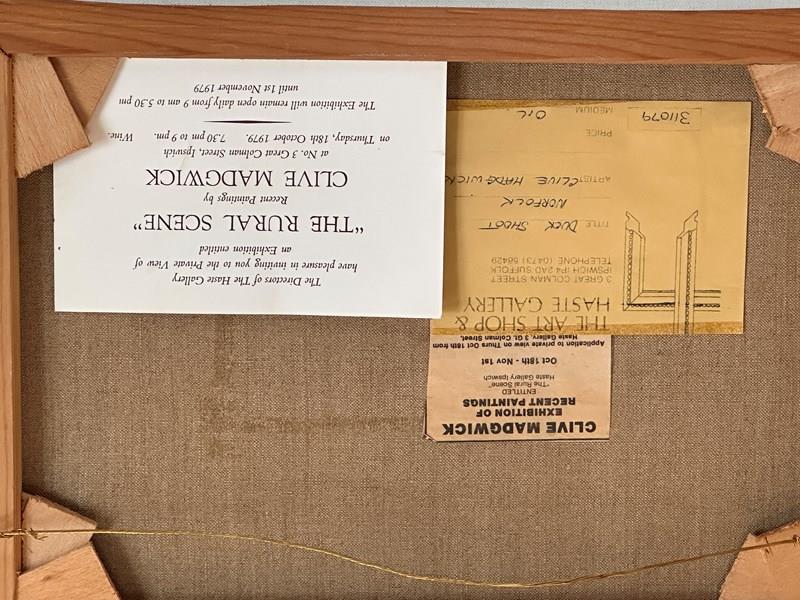 The Directors of The Haste Gallery
have pleasure in inviting you to the Private View of
an Exhibition entitled
“THE RURAL SCENE”
Recent Paintings by
CLIVE MADGWICK
at No. 3 Great Colman Street, Ipswich
on Thursday, 18th October 1979. 7.30 pm to 9 pm. Wine.
The Exhibition will remain open daily from 9 am to 5.30 pm
until 1st November 1979
CLIVE MADGWICK
EXHIBITION OF
RECENT PAINTINGS
ENTITLED
"The Rural Scene"
Haste Gallery Ipswich
Oct 18th - Nov 1st
Application to private on view on Thurs Oct 18th from
Haste Gallery, 3 Gt. Colman Street,
THE ART SHOP &
HASTE GALLERY
3 GREAT COLMAN STREET
IPSWICH IP4 2AD SUFFOLK
TELEPHONE (0473) 58429
TITLE DUCK SHOOT
NORFOLK
ARTIST CLIVE MADGWICK
PRICE
MEDIUM OIL
311079